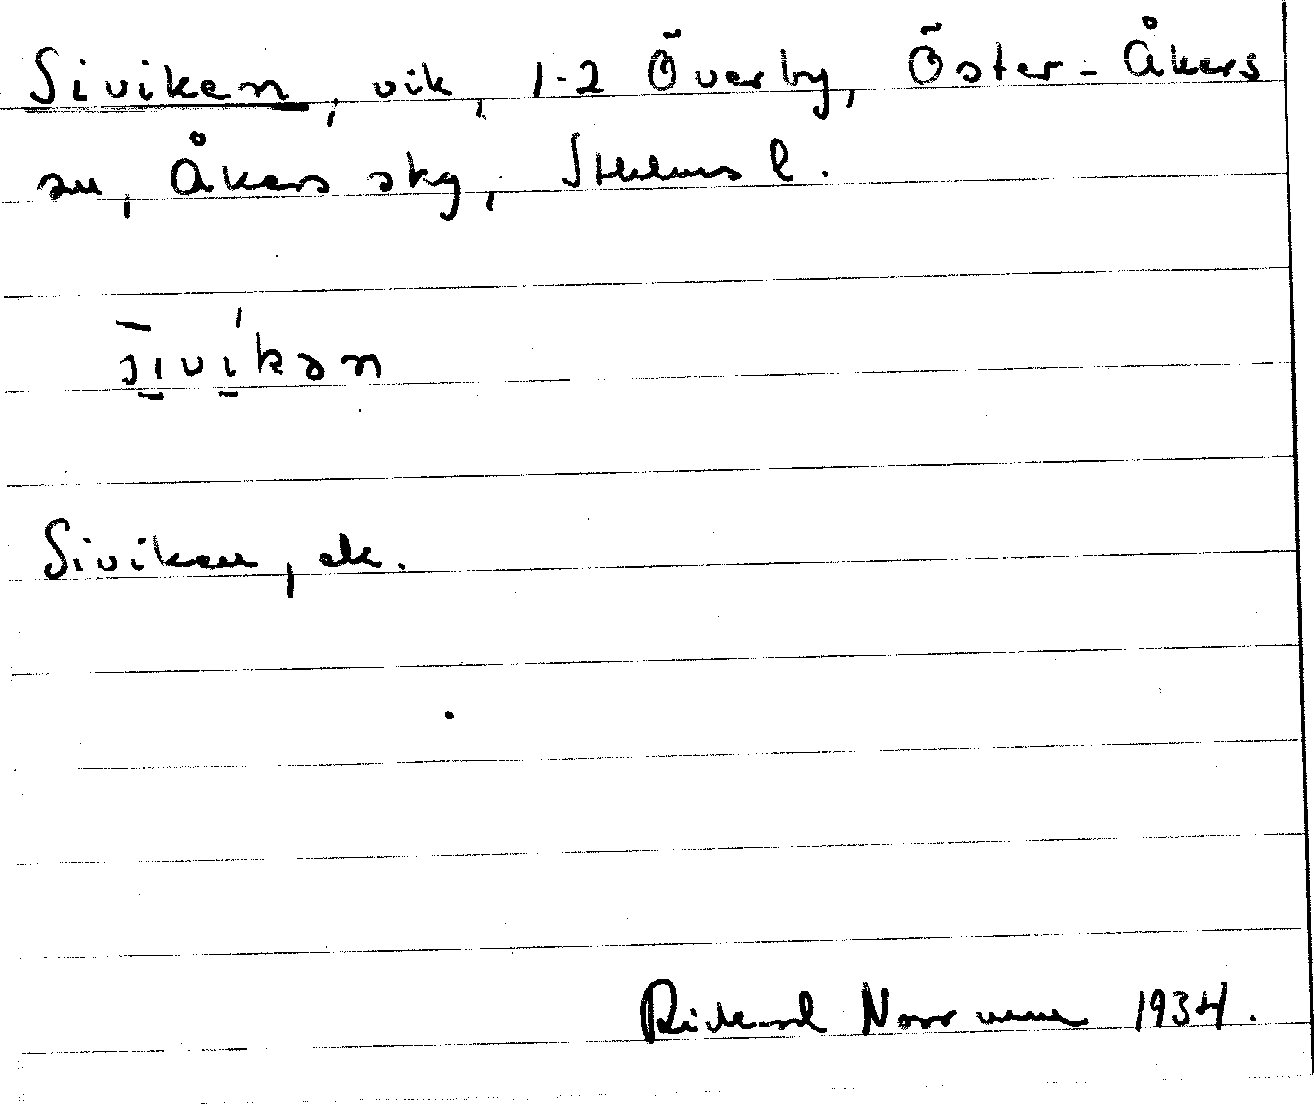 Siviken, vik, 1-2 Överby, Öster-Åkers
sn, Åkers skg, Sthlms l.
sivikən
Siviken, ek.
Rickard Norrman 1934.